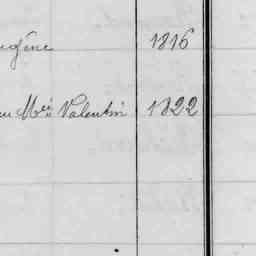 ugène 1816
eu Mce Valentin 1822